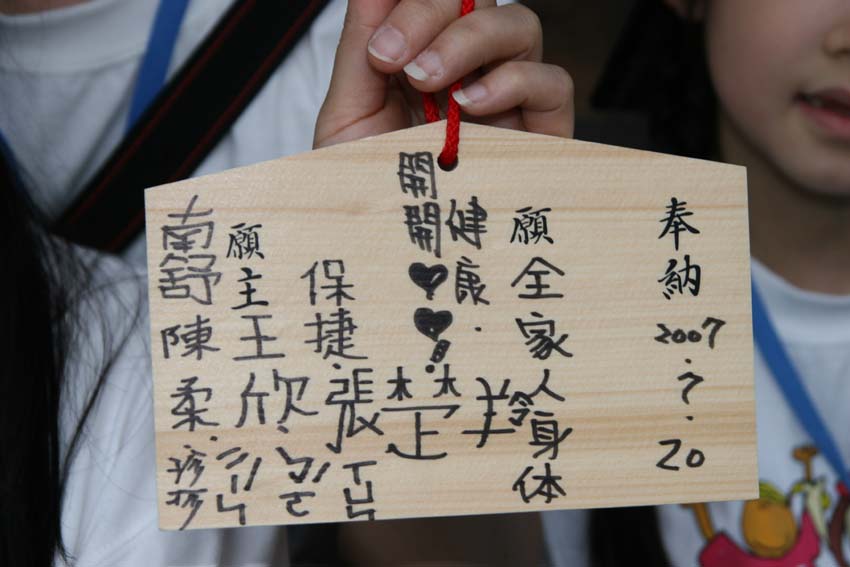 奉納
2007.7.20
願全家人身体
健康.
開開♥♥!
保捷.張楚羚
願主
王欣
南舒陳柔.